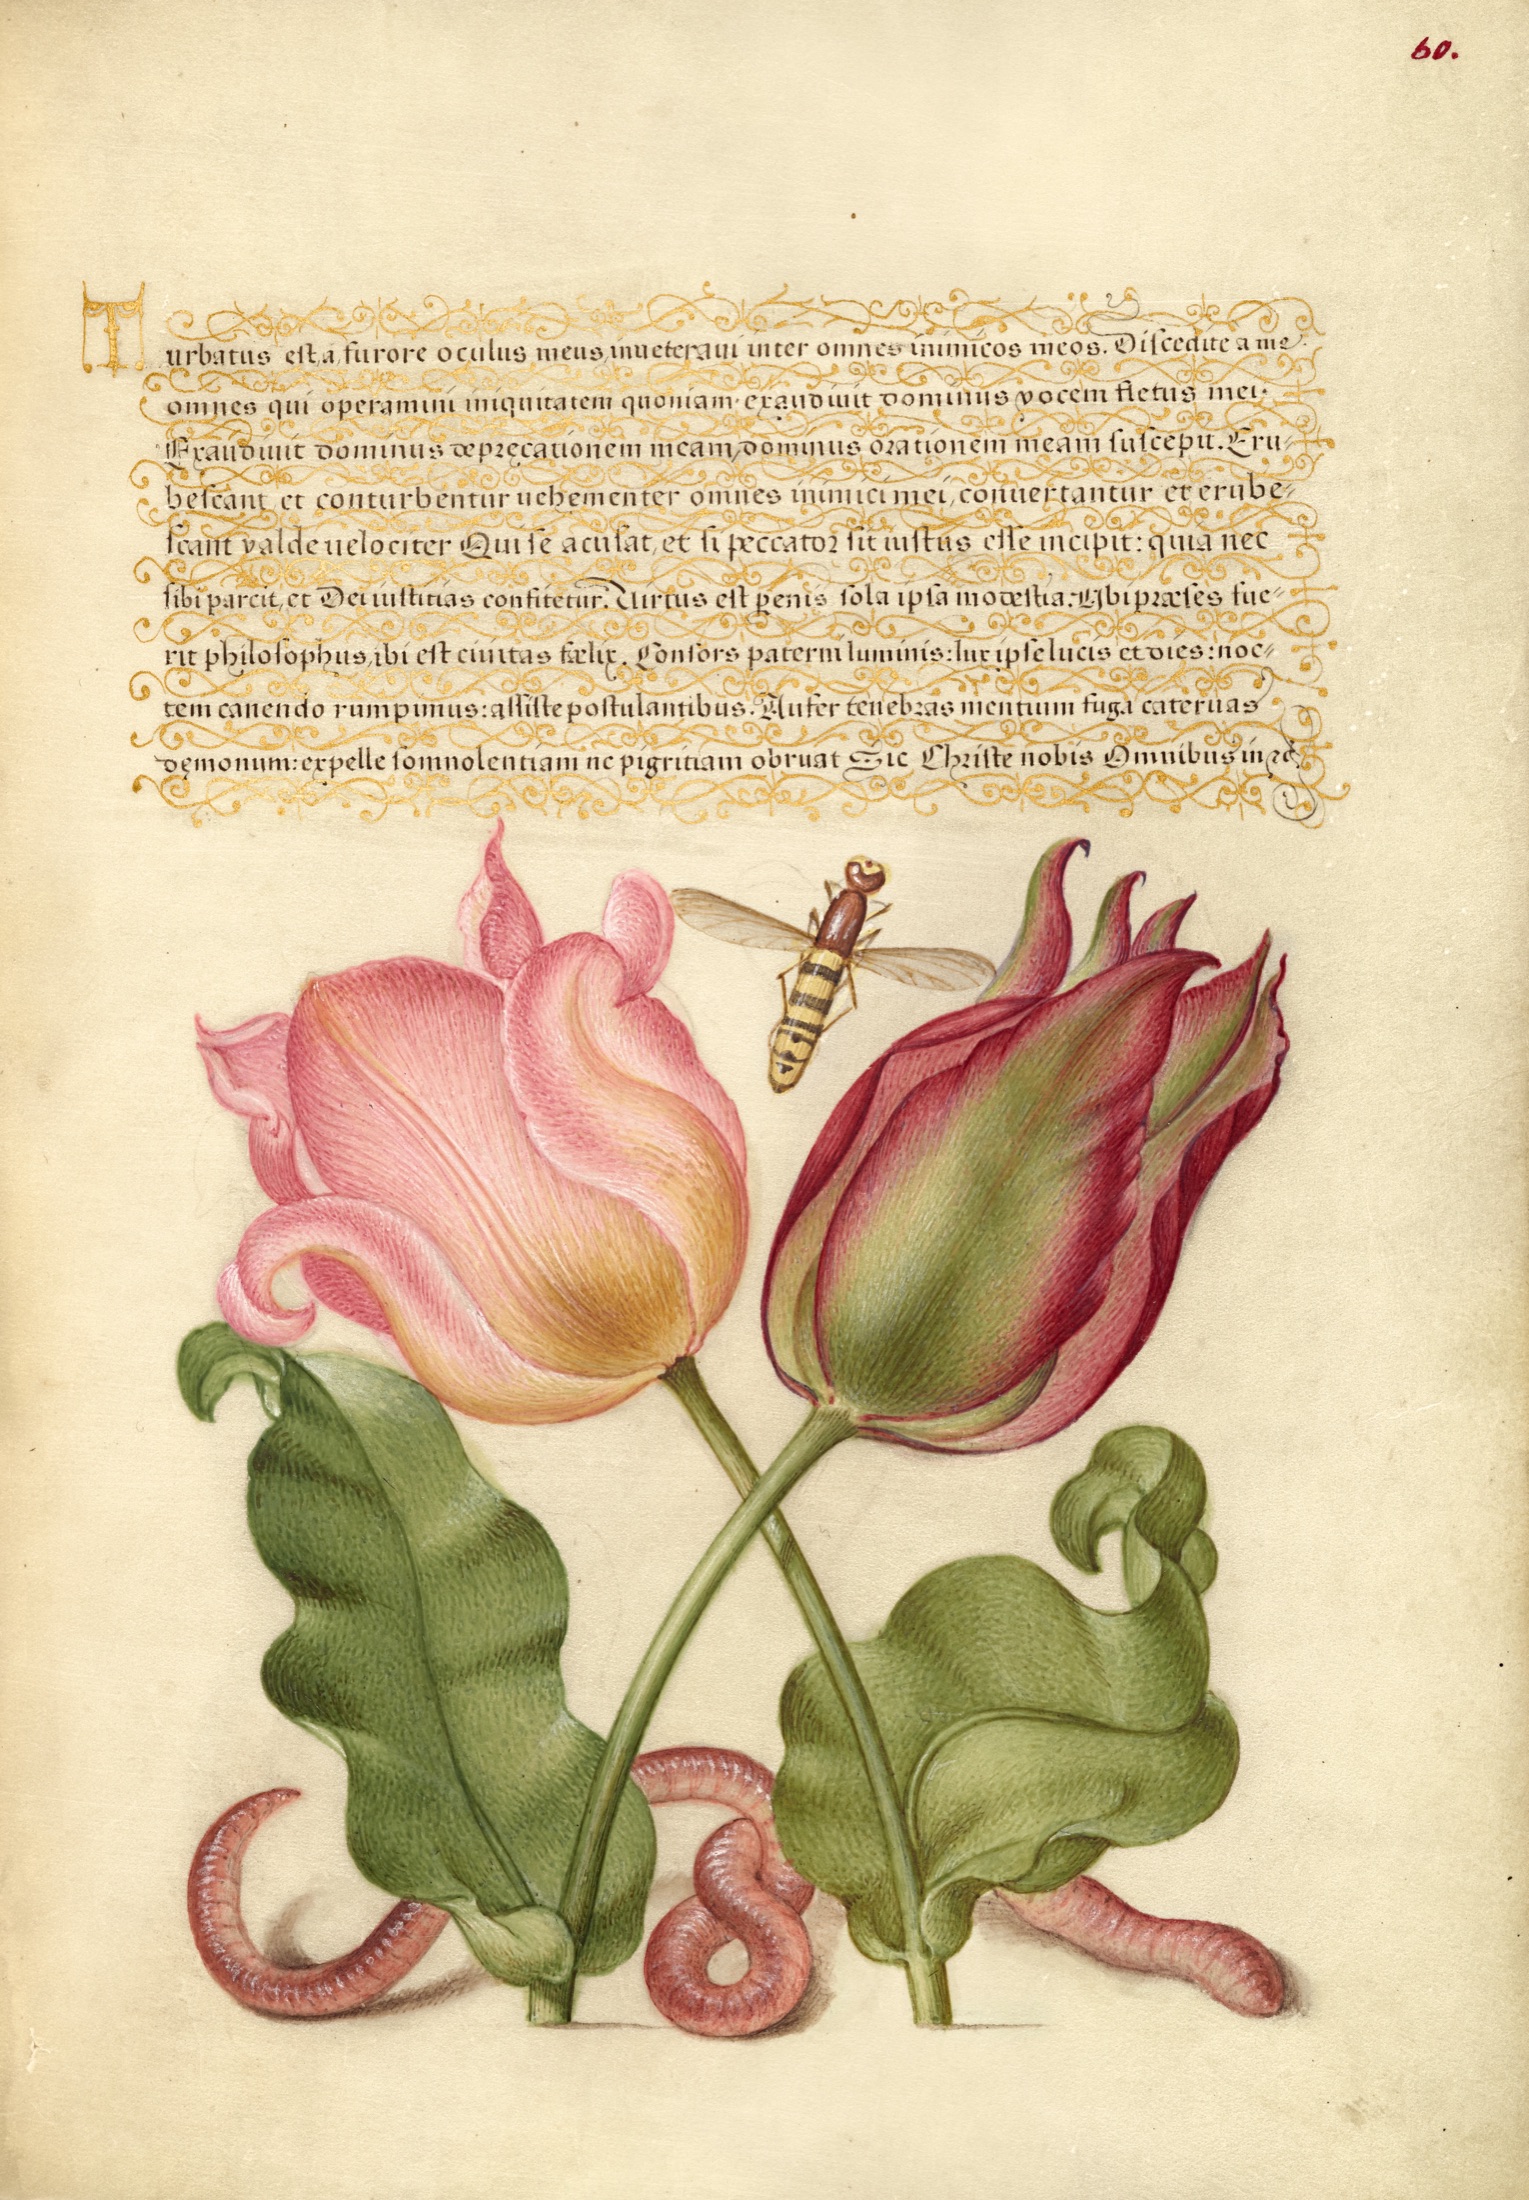 60.
Turbatus est, a, furore oculus meus, inueteraui inter omnes inimicos meos. Discedite a me
omnes qui operamini iniquitatem quoniam exaudiuit dominus vocem fletus mei.
Exaudiuit dominus deprecationem meam, dominus orationem meam suscepit. Eru-
bescant, et conturbentur uehementer omnes inimici mei, conuertantur et erube-
scant valde uelociter Qui se acusat, et si peccator sit iustus esse incipit: quia nec
sibi parcit, et Dei iustitias confitetur. Virtus est penis sola ipsa modestia. Ubi præses fue-
rit philosophus, ibi est ciuitas fælix. Consors paterni luminis: lux ipse lucis et dies: noc-
tem canendo rumpimus: assiste postulantibus. Aufer tenebras mentium fuga cateruas
demonum: expelle somnolentiam ne pigritiam obruat Sic Christe nobis Omnibus in